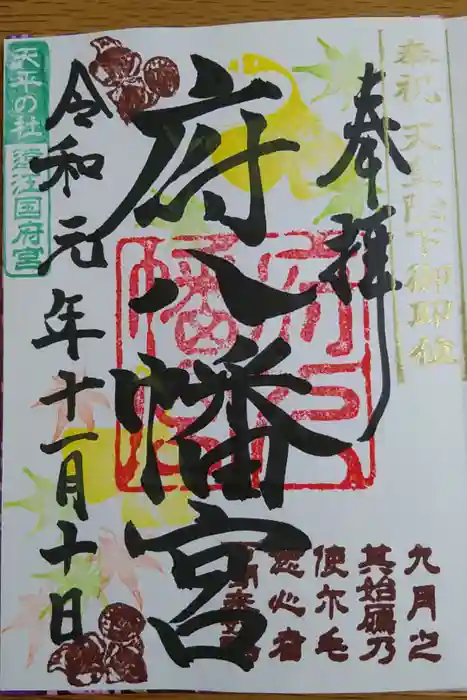 奉祝 天皇陛下御即位
奉拝
府八幡宮
令和元年十一月十日
天平の社
遠江国府宮
九月之
其始鴈乃
使尓毛
念心者